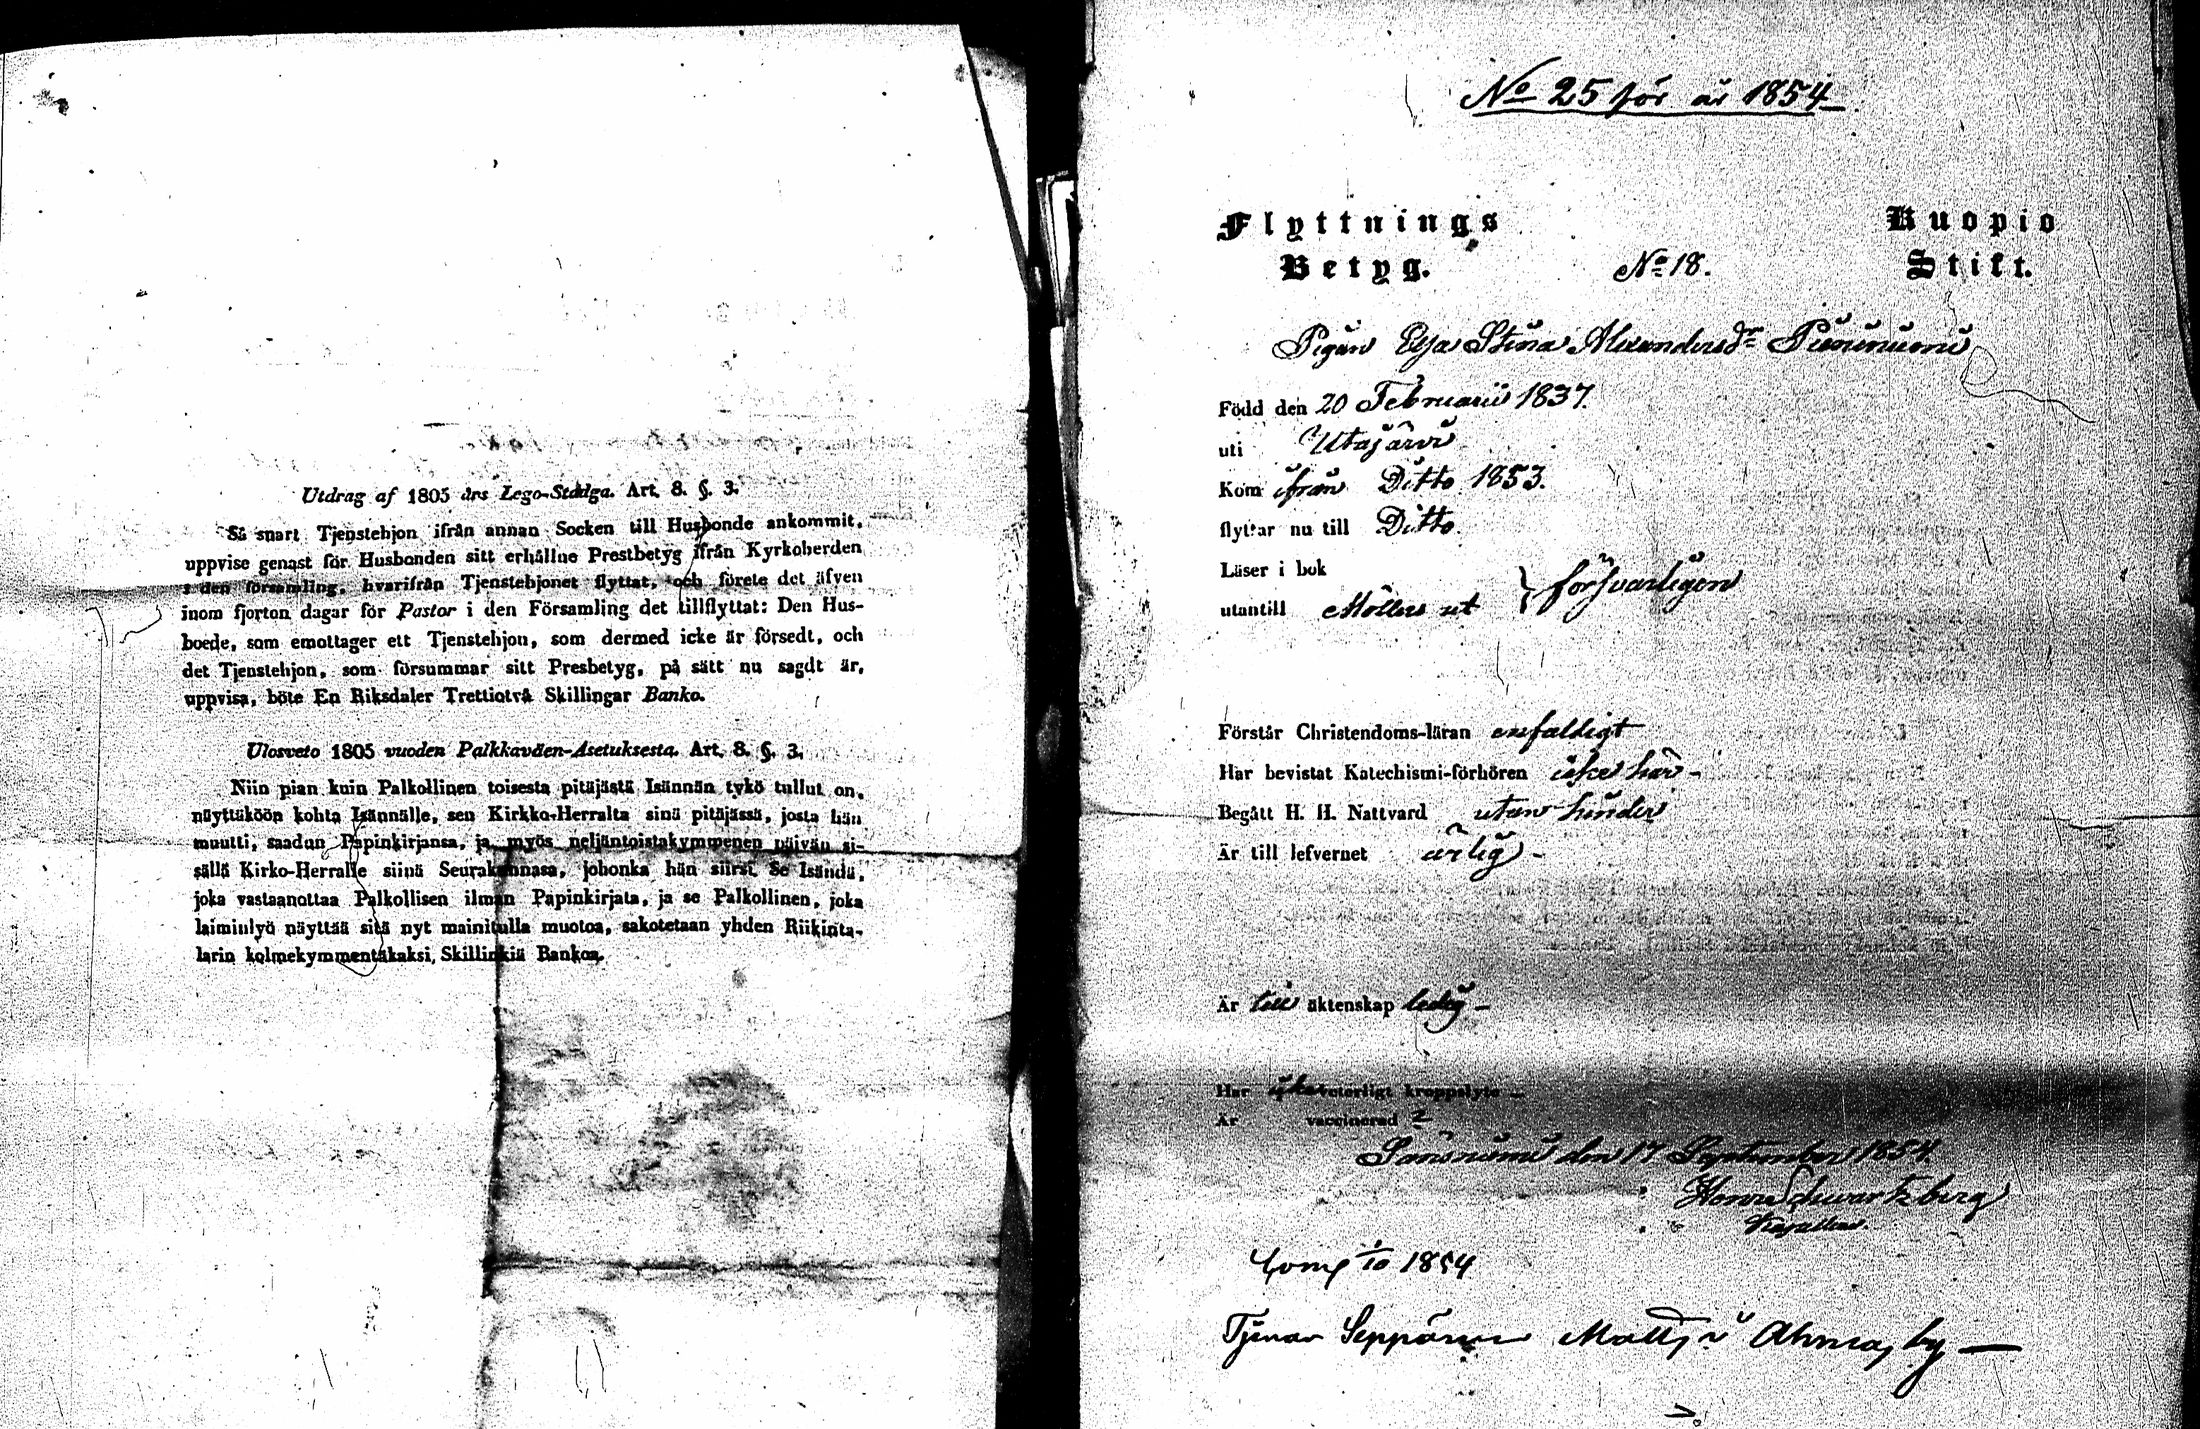 Utdrag af 1805 års Lego-Stadga. Art. 8. §. 3.
Så snart Tjenstehjon ifrån annan Socken till Husbonde ankommit,
uppvise genast för Husbonden sitt erhållne Prestbetyg ifrån Kyrkoherden
i den församling, hvarifrån Tjenstehjonet flyttat, och förete det äfven
inom fjorton dagar för Pastor i den Församling det tillflyttat: Den Hus-
boede, som emottager ett Tjenstehjon, som dermed icke är försedt, och
det Tjenstehjon, som försummar sitt Presbetyg, på sätt nu sagdt är,
uppvisa, böte En Riksdaler Trettiotvå Skillingar Banko.
Ulosveto 1805 vuoden Palkkaväen-Asetuksesta. Art. 8. §. 3.
Niin pian kuin Palkollinen toisesta pitäjästä Isännän tykö tullut on,
näyttäköön kohta Isännälle, sen Kirkko-Herralta sinä pitäjässä, josta hän
muutti, saadun Papinkirjansa, ja myös neljäntoistakymmenen päivän si-
sällä Kirko-Herralle siinä Seurakunnasa, johonka hän siirsi. Se Isändä,
joka vastaanottaa Palkollisen ilman Papinkirjata, ja se Palkollinen, joka
laiminlyö näyttää sitä nyt mainitulla muotoa, sakotetaan yhden Riikinta-
larin kolmekymmentäkaksi, Skillinkiä Bankoa.
No 25 för år 1854
Flyttnings
Betyg.
No 18.
Kuopio
Stift.
Pigan Eva Stina Alexandersdr
Född den 20 Februarii 1837.
uti Utajärvi
Kom ifrån Ditto 1853.
flyttar nu till Ditto.
Läser i bok
utantill Möllers ut } försvarligen
Förstår Christendoms-läran enfaldigt
Har bevistat Katechismi-förhören icke här -
Begått H. H. Nattvard utan hinder
Är till lefvernet ärlig -
Är till äktenskap ledig -
Har icke veterligt kroppslyte -
Är vaccinerad
den 17 September 1854.
Schwartzberg
1/10 1854
Tjenar Seppänen Matts i Ahmas by —